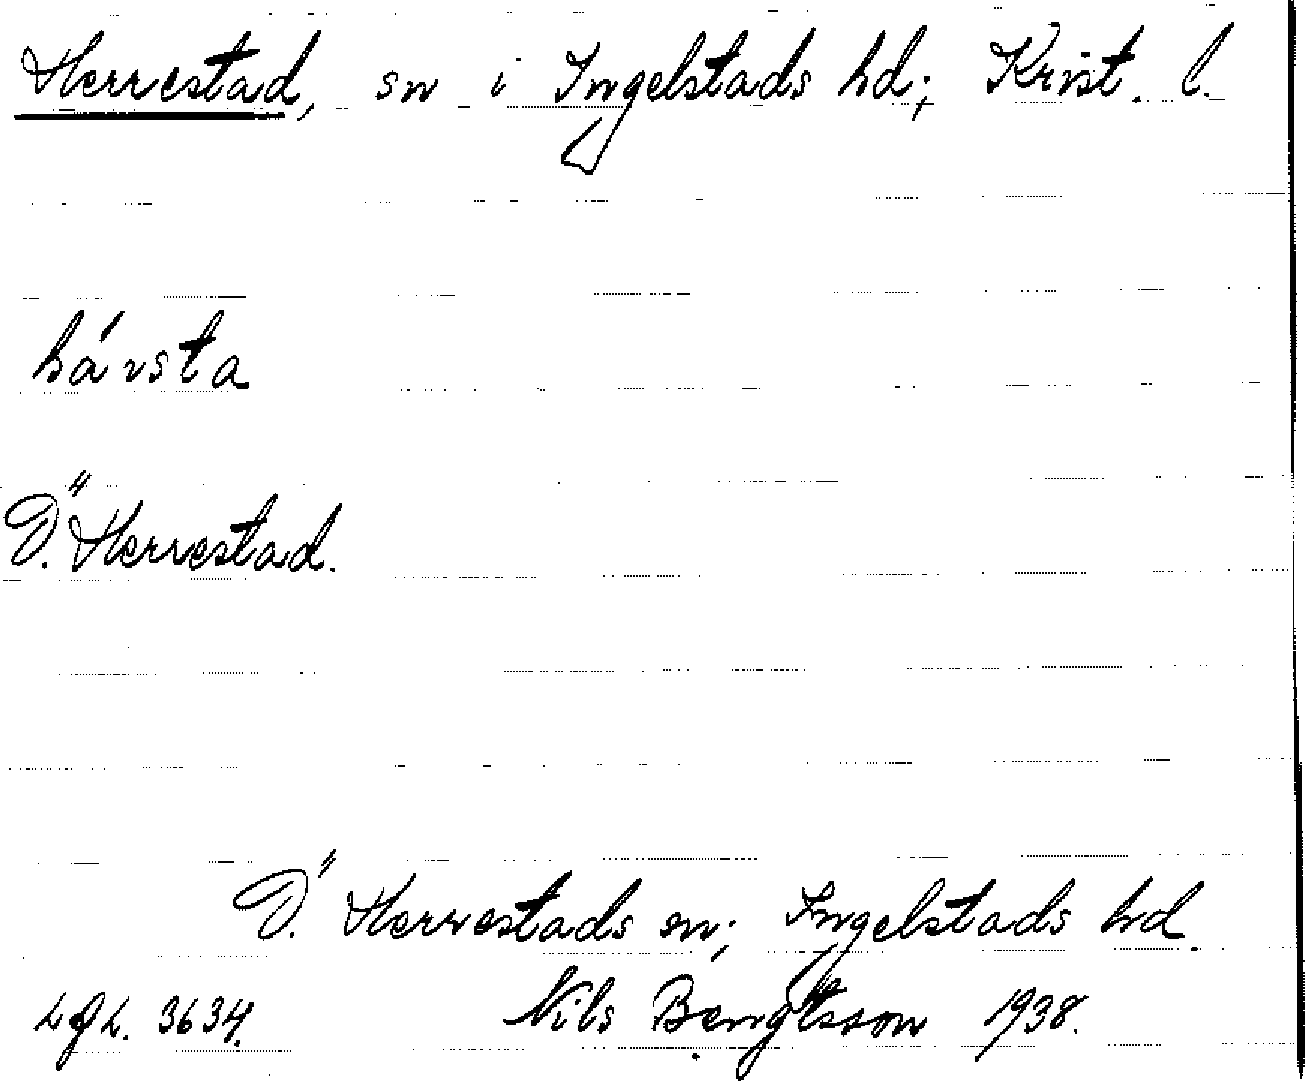 Herrestad, sn i Ingelstads hd; Krist. l.
hávsta
Ö. Herrestad.
Ö. Herrestads sn; Ingelstads hd.
Nils Bengtsson 1938.